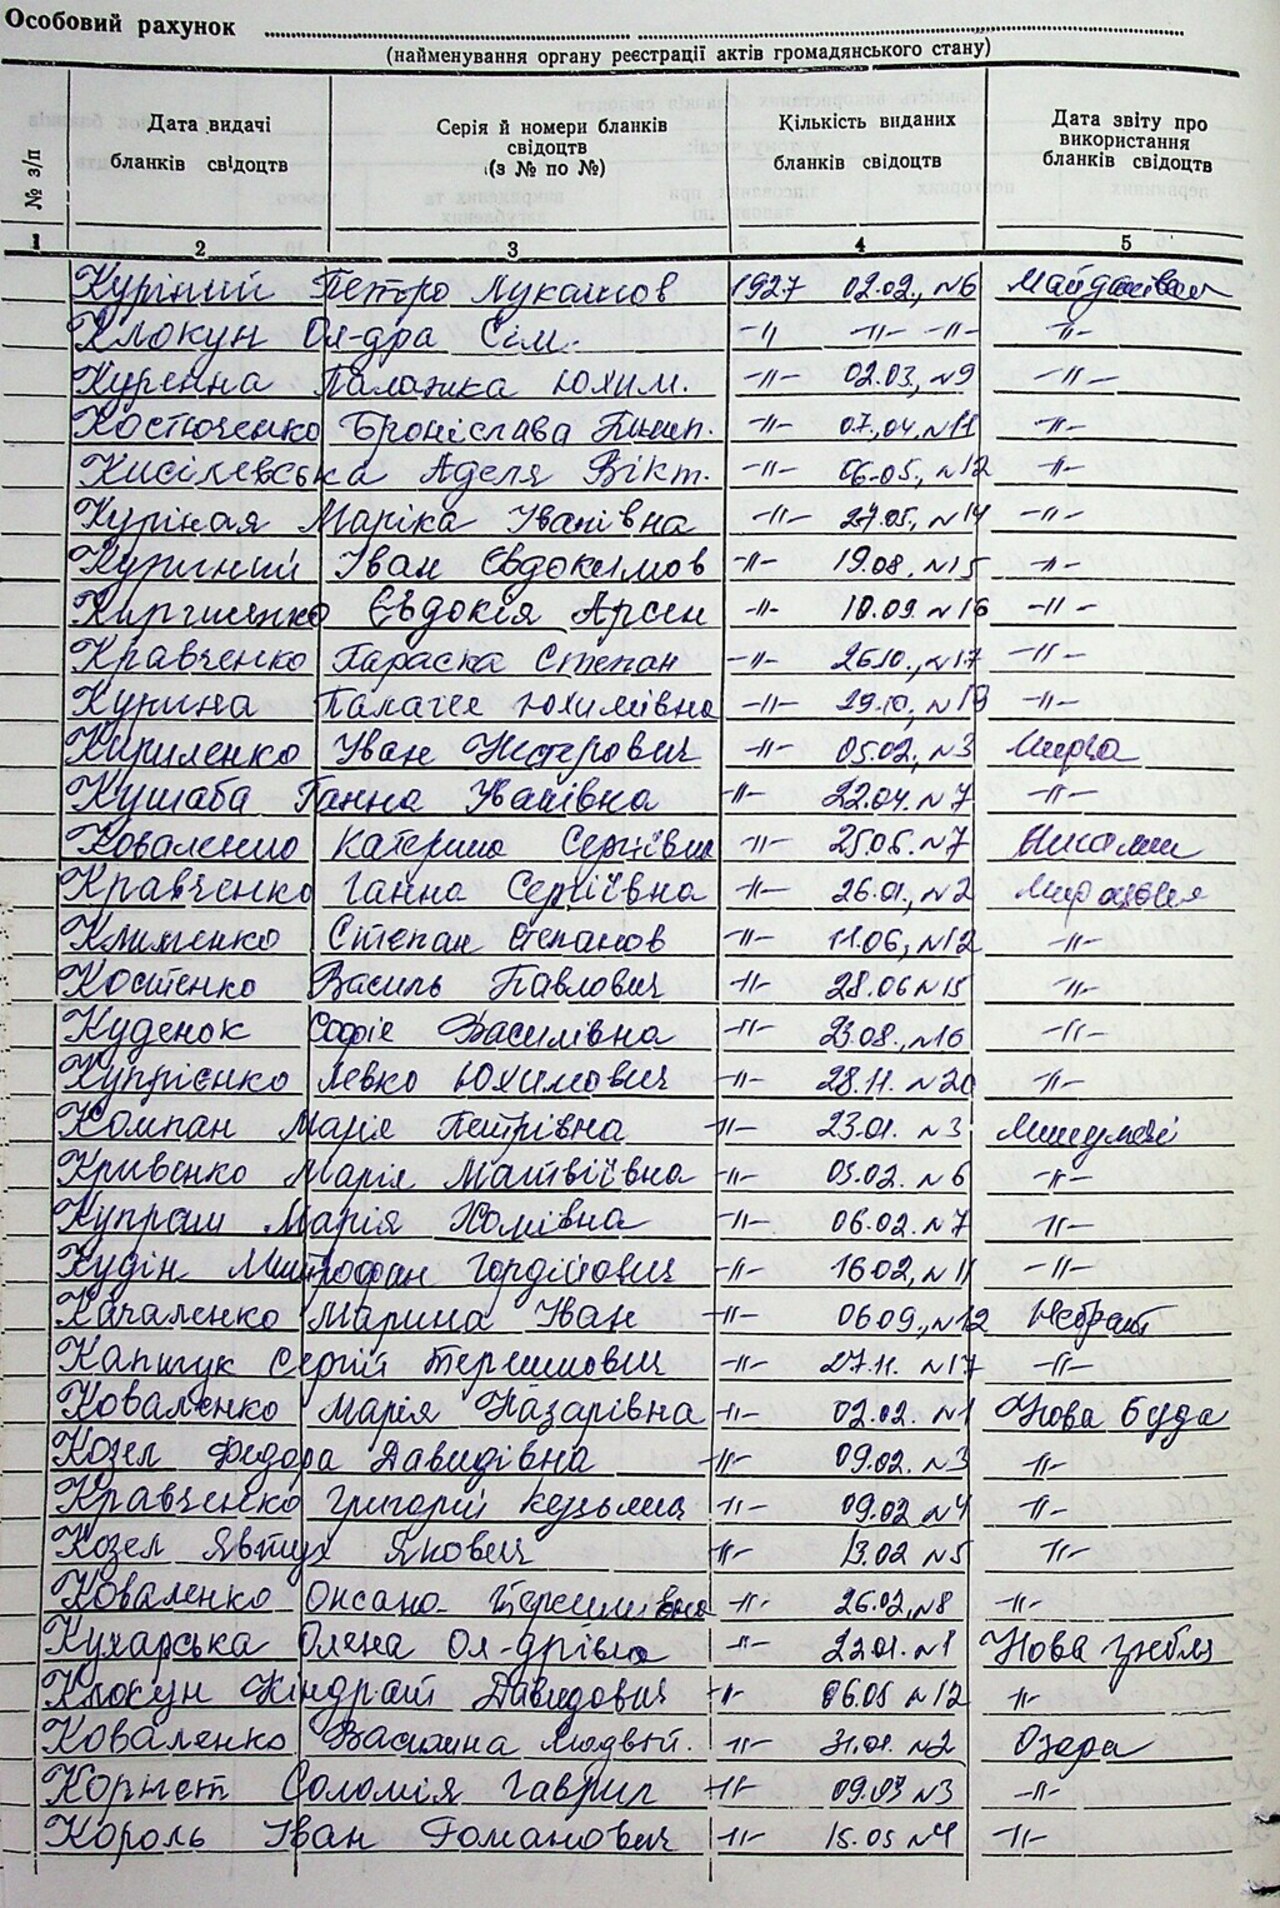 Особовий рахунок
(найменування органу реєстрації актів громадянського стану)
№ з/п
Дата видачі бланків свідоцтв
Серія й номери бланків свідоцтв (з № по №)
Кількість виданих бланків свідоцтв
Дата звіту про використання бланків свідоцтв
1 2 3 4 5
Петро 1927 02.02., №6
Клокун Ол-дра Сім. -"- -"- -"- -"-
Куренна Палажка Юхим. -"- 02.03., №9 -"-
Костюченко Броніслава -"- 07.04. №11 -"-
Кисілевська Аделя Вікт. -"- 06.05., №12 -"-
Куріная Маріка Іванівна -"- 27.05., №14 -"-
Іван Євдокимов -"- 19.08. №15 -"-
Євдокія Арсен -"- 10.09. №16 -"-
Кравченко Параска Степан -"- 26.10., №17 -"-
Курина Палагея Юхимівна -"- 29.10, №19 -"-
Кириленко Іван Нестерович -"- 05.02., №3
Кушаба Ганна Іванівна -"- 22.04. №7 -"-
Коваленко Катерина Сергіївна -"- 25.06. №7
Кравченко Ганна Сергіївна -"- 26.01., №2
Клименко Степан Степанов -"- 11.06, №12 -"-
Костенко Василь Павлович -"- 28.06 №15 -"-
Куденок Софіє Василівна -"- 23.08., №16 -"-
Купрієнко Левко Юхимович -"- 28.11. №20 -"-
Компан Маріє Петрівна -"- 23.01. №3
Кривенко Марія Матвіївна -"- 05.02. №6 -"-
Марія Хомівна -"- 06.02. №7 -"-
Кудін Митрофан Гордійович -"- 16.02, №11 -"-
Качаленко Марина Іван -"- 06.09., №12
Капшук Сергій -"- 27.11. №17 -"-
Коваленко Марія Назарівна -"- 02.02. №1 Нова Буда
Козел Федора Давидівна -"- 09.02. №3 -"-
Кравченко Григорій -"- 09.02 №4 -"-
Козел Явтух Якович -"- 13.02 №5 -"-
Коваленко Оксана -"- 26.02, №8 -"-
Кухарська Олена Ол-дрівна -"- 22.01. №1 Нова Гребля
Клокун Кіндрат Давидович -"- 06.05 №12 -"-
Коваленко Василина -"- 31.01. №2 Озера
Соломія Гаврил -"- 09.03 №3 -"-
Король Іван Романович -"- 15.05 №4 -"-